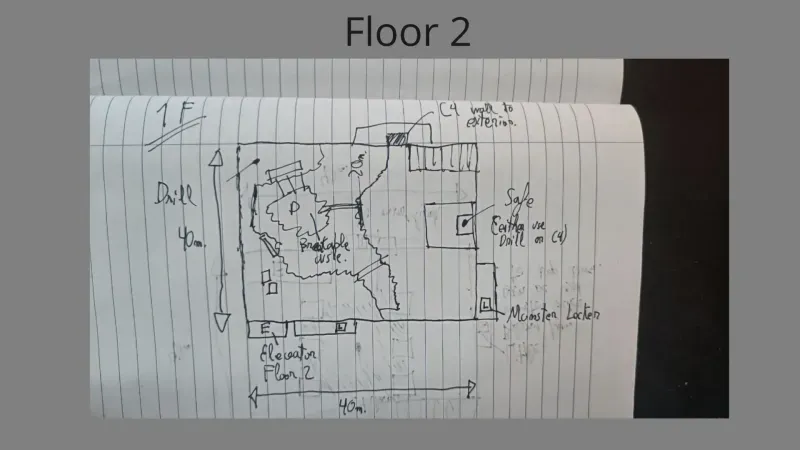 Floor 2
1F
C4 wall to
exterior.
20m
Drill
40m.
D
Breakable
Safe
(either use
Drill or C4)
L
Monster Locker
E
L
Elevator
Floor 2
40m.